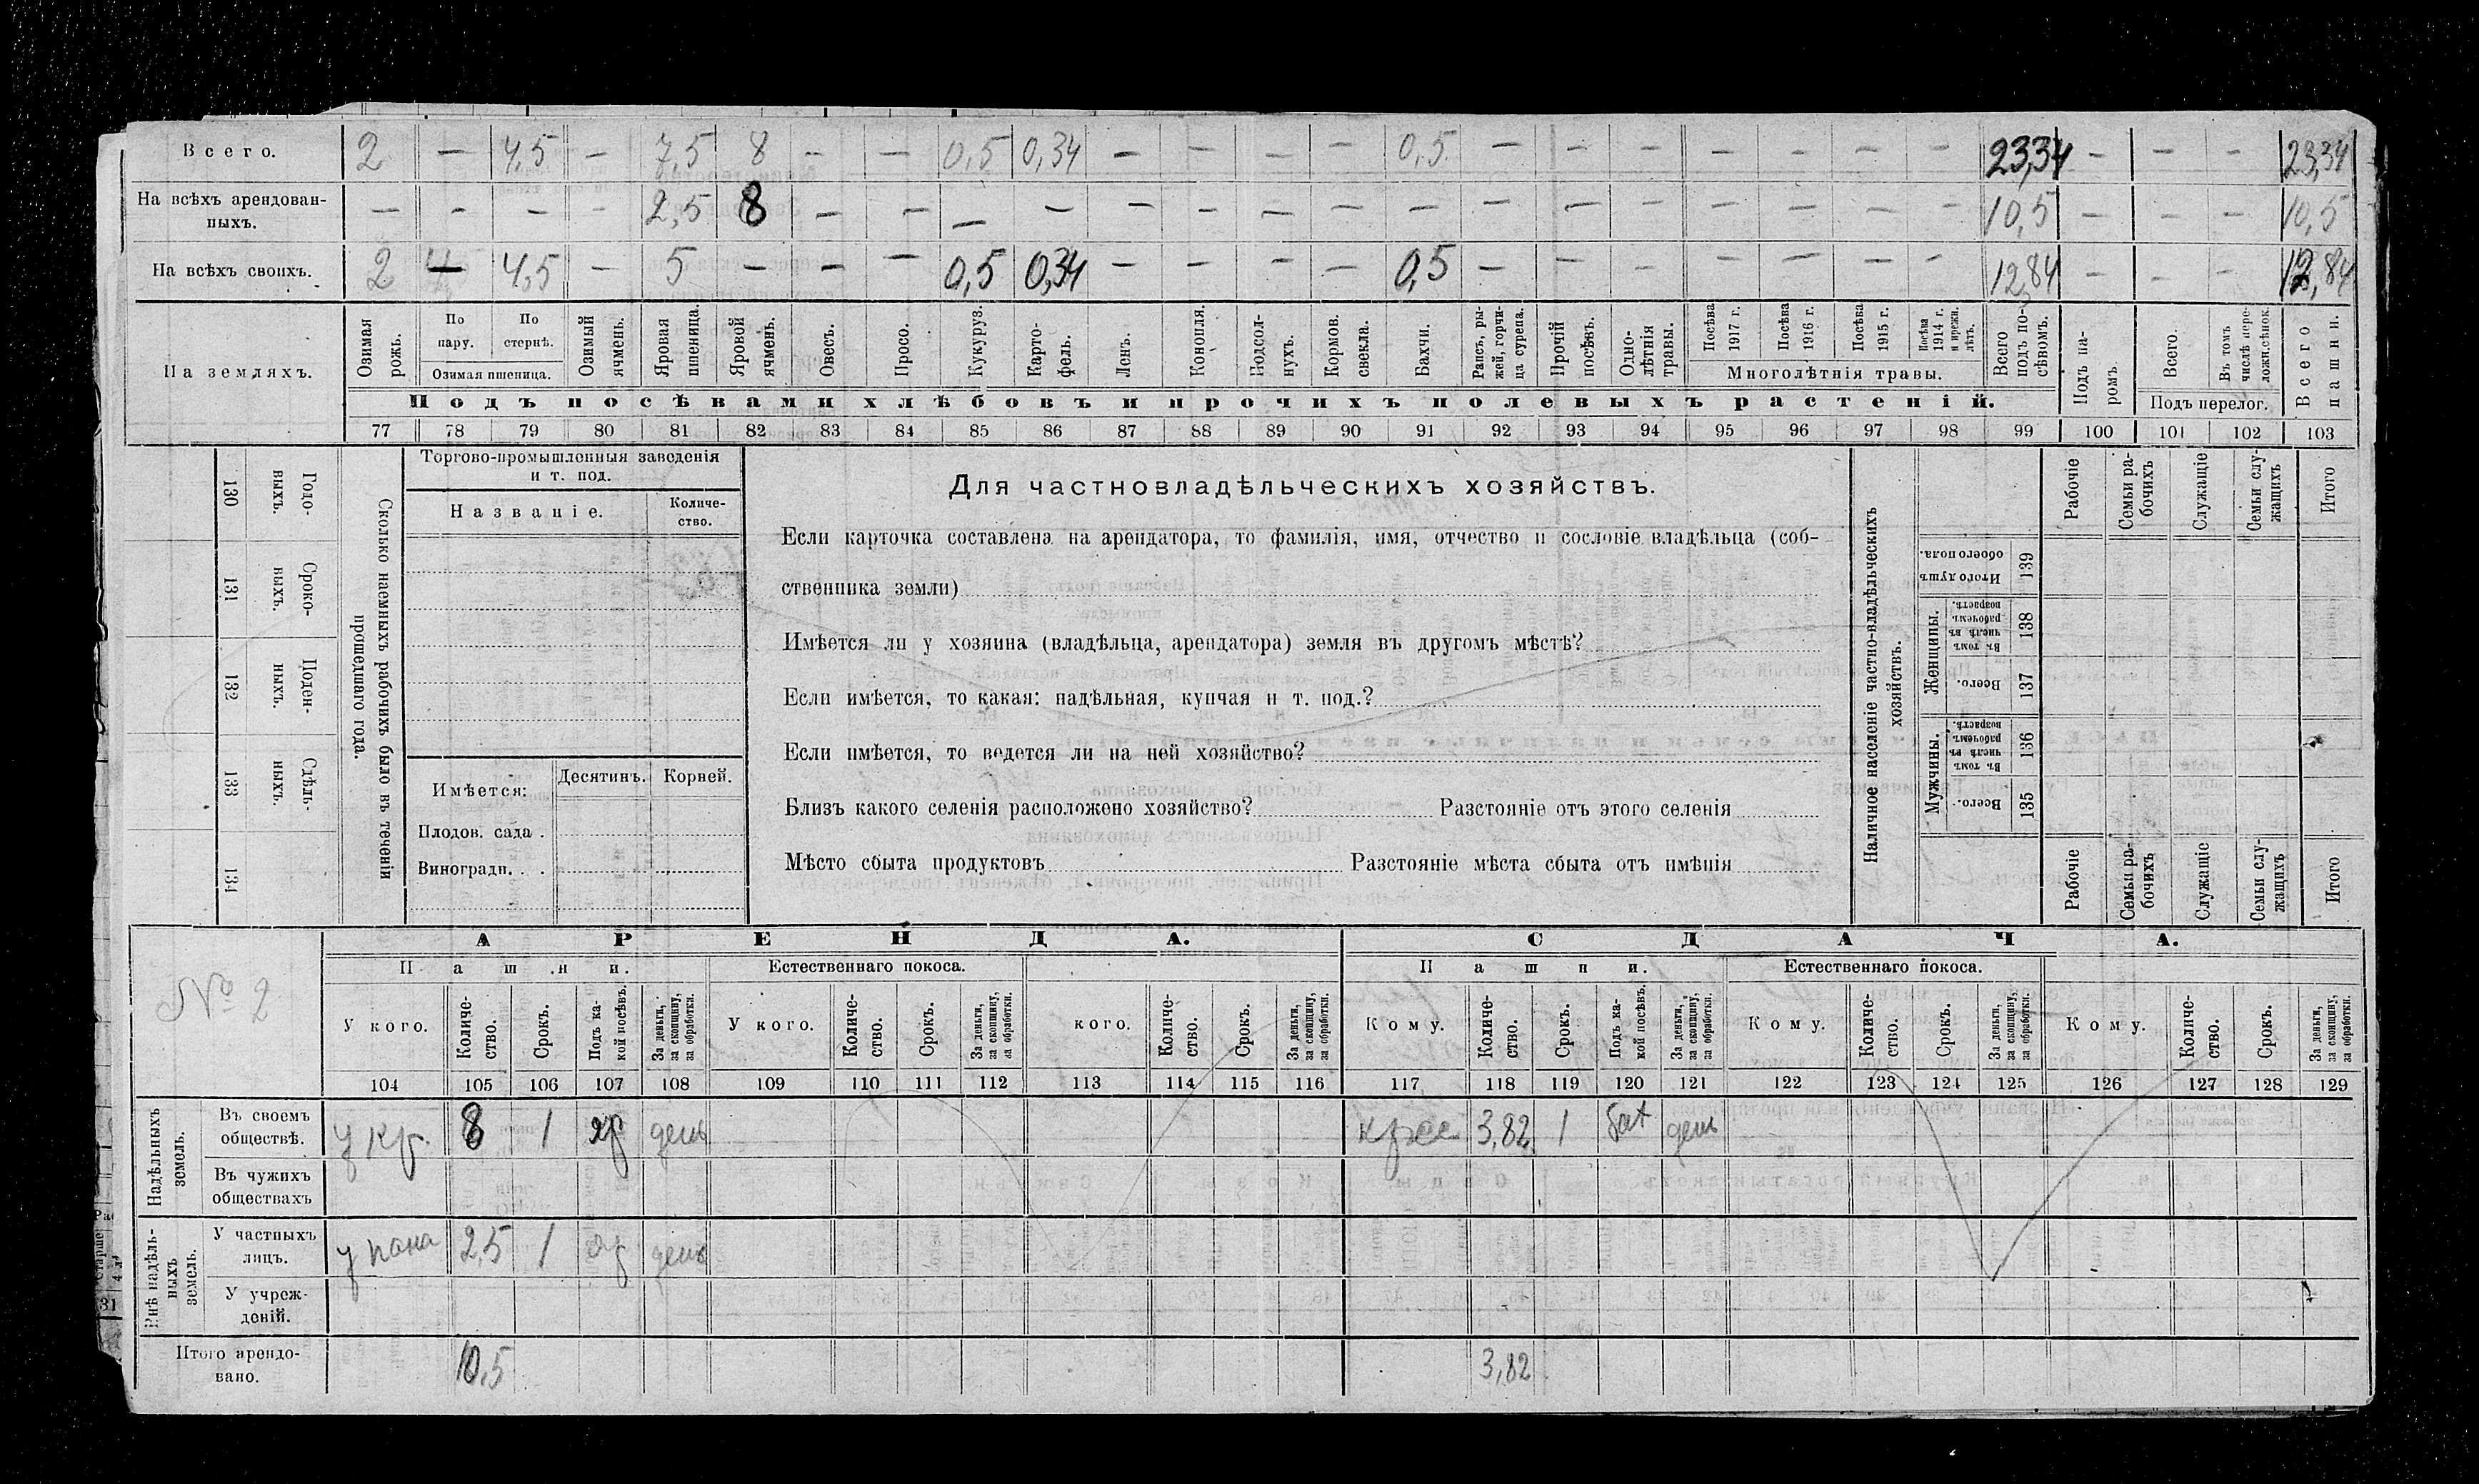 Всего. 2 — 4,5 — 7,5 8 — — 0,5 0,34 — — — — 0,5 — — — — — — — 23,34 — — — 23,34
На всѣхъ арендован-
ныхъ. — — — — 2,5 8 — — — — — — — — — — — — — — — — 10,5 — — — 10,5
На всѣхъ своихъ. 2 — 4,5 — 5 — — — 0,5 0,34 — — — — 0,5 — — — — — — — 12,84 — — — 12,84
На земляхъ.
Озимая рожь.
По пару.
По стернѣ.
Озимая пшеница.
Озимый ячмень.
Яровая пшеница.
Яровой ячмень.
Овесъ.
Просо.
Кукуруз.
Карто-
фель.
Ленъ.
Конопля.
Подсол-
нухъ.
Кормов. свекла.
Бахчи.
Рапсъ, ры-
жей, горчи-
ца сурепа.
Прочій посѣвъ.
Одно-
лѣтнія травы.
Посѣва 1917 г.
Посѣва 1916 г.
Посѣва 1915 г.
Посѣва 1914 г. и прежн. лѣтъ.
Многолѣтнія травы.
Всего подъ по-
сѣвомъ.
Подъ па-
ромъ.
Всего.
Въ томъ числѣ пере-
лож. сѣнок.
Подъ перелог.
Всего пашни.
Подъ посѣвами хлѣбовъ и прочихъ полевыхъ растеній.
77 78 79 80 81 82 83 84 85 86 87 88 89 90 91 92 93 94 95 96 97 98 99 100 101 102 103
130 Годо-
ныхъ.
131 Сроко-
ныхъ.
132 Поден-
ныхъ.
133 Сдѣль-
ныхъ.
134
Сколько наемныхъ рабочихъ было въ теченіи
прошедшаго года.
Торгово-промышленныя заведенія
и т. под.
Названіе.
Количе-
ство.
Имѣется:
Десятинъ.
Корней.
Плодов. сада .
Виноградн. . .
Для частновладѣльческихъ хозяйствъ.
Если карточка составлена на арендатора, то фамилія, имя, отчество и сословіе владѣльца (соб-
ственника земли)
Имѣется ли у хозяина (владѣльца, арендатора) земля въ другомъ мѣстѣ?
Если имѣется, то какая: надѣльная, купчая и т. под.?
Если имѣется, то ведется ли на ней хозяйство?
Близъ какого селенія расположено хозяйство? Разстояніе отъ этого селенія
Мѣсто сбыта продуктовъ Разстояніе мѣста сбыта отъ имѣнія
Наличное населеніе частно-владѣльческихъ
хозяйствъ.
Рабочіе
Семьи ра-
бочихъ
Служащіе
Семьи слу-
жащихъ
Итого
Итого душъ обоего пола. 139
Женщины.
Въ томъ числѣ въ рабочемъ возрастѣ. 138
Всего. 137
Мужчины.
Въ томъ числѣ въ рабочемъ возрастѣ. 136
Всего. 135
Рабочіе
Семьи ра-
бочихъ
Служащіе
Семьи слу-
жащихъ
Итого
№ 2
АРЕНДА. СДАЧА.
Пашни. Естественнаго покоса. Пашни. Естественнаго покоса.
У кого.
Количе-
ство.
Срокъ.
Подъ ка-
кой посѣвъ.
За деньги,
за скопщину,
за обработки.
У кого.
Количе-
ство.
Срокъ.
За деньги,
за скопщину,
за обработки.
кого.
Количе-
ство.
Срокъ.
За деньги,
за скопщину,
за обработки.
Кому.
Количе-
ство.
Срокъ.
Подъ ка-
кой посѣвъ.
За деньги,
за скопщину,
за обработки.
Кому.
Количе-
ство.
Срокъ.
За деньги,
за скопщину,
за обработки.
Кому.
Количе-
ство.
Срокъ.
За деньги,
за скопщину,
за обработки.
104 105 106 107 108 109 110 111 112 113 114 115 116 117 118 119 120 121 122 123 124 125 126 127 128 129
Надѣльныхъ
земель.
Въ своемъ
обществѣ. у кр. 8 1 яр день 3,82 1 бах день
Въ чужихъ
обществахъ
Внѣ надѣль-
ныхъ
земель.
У частныхъ
лицъ. у пана 2,5 1 яр день
У учреж-
деній.
Итого арендо-
вано. 10,5 3,82